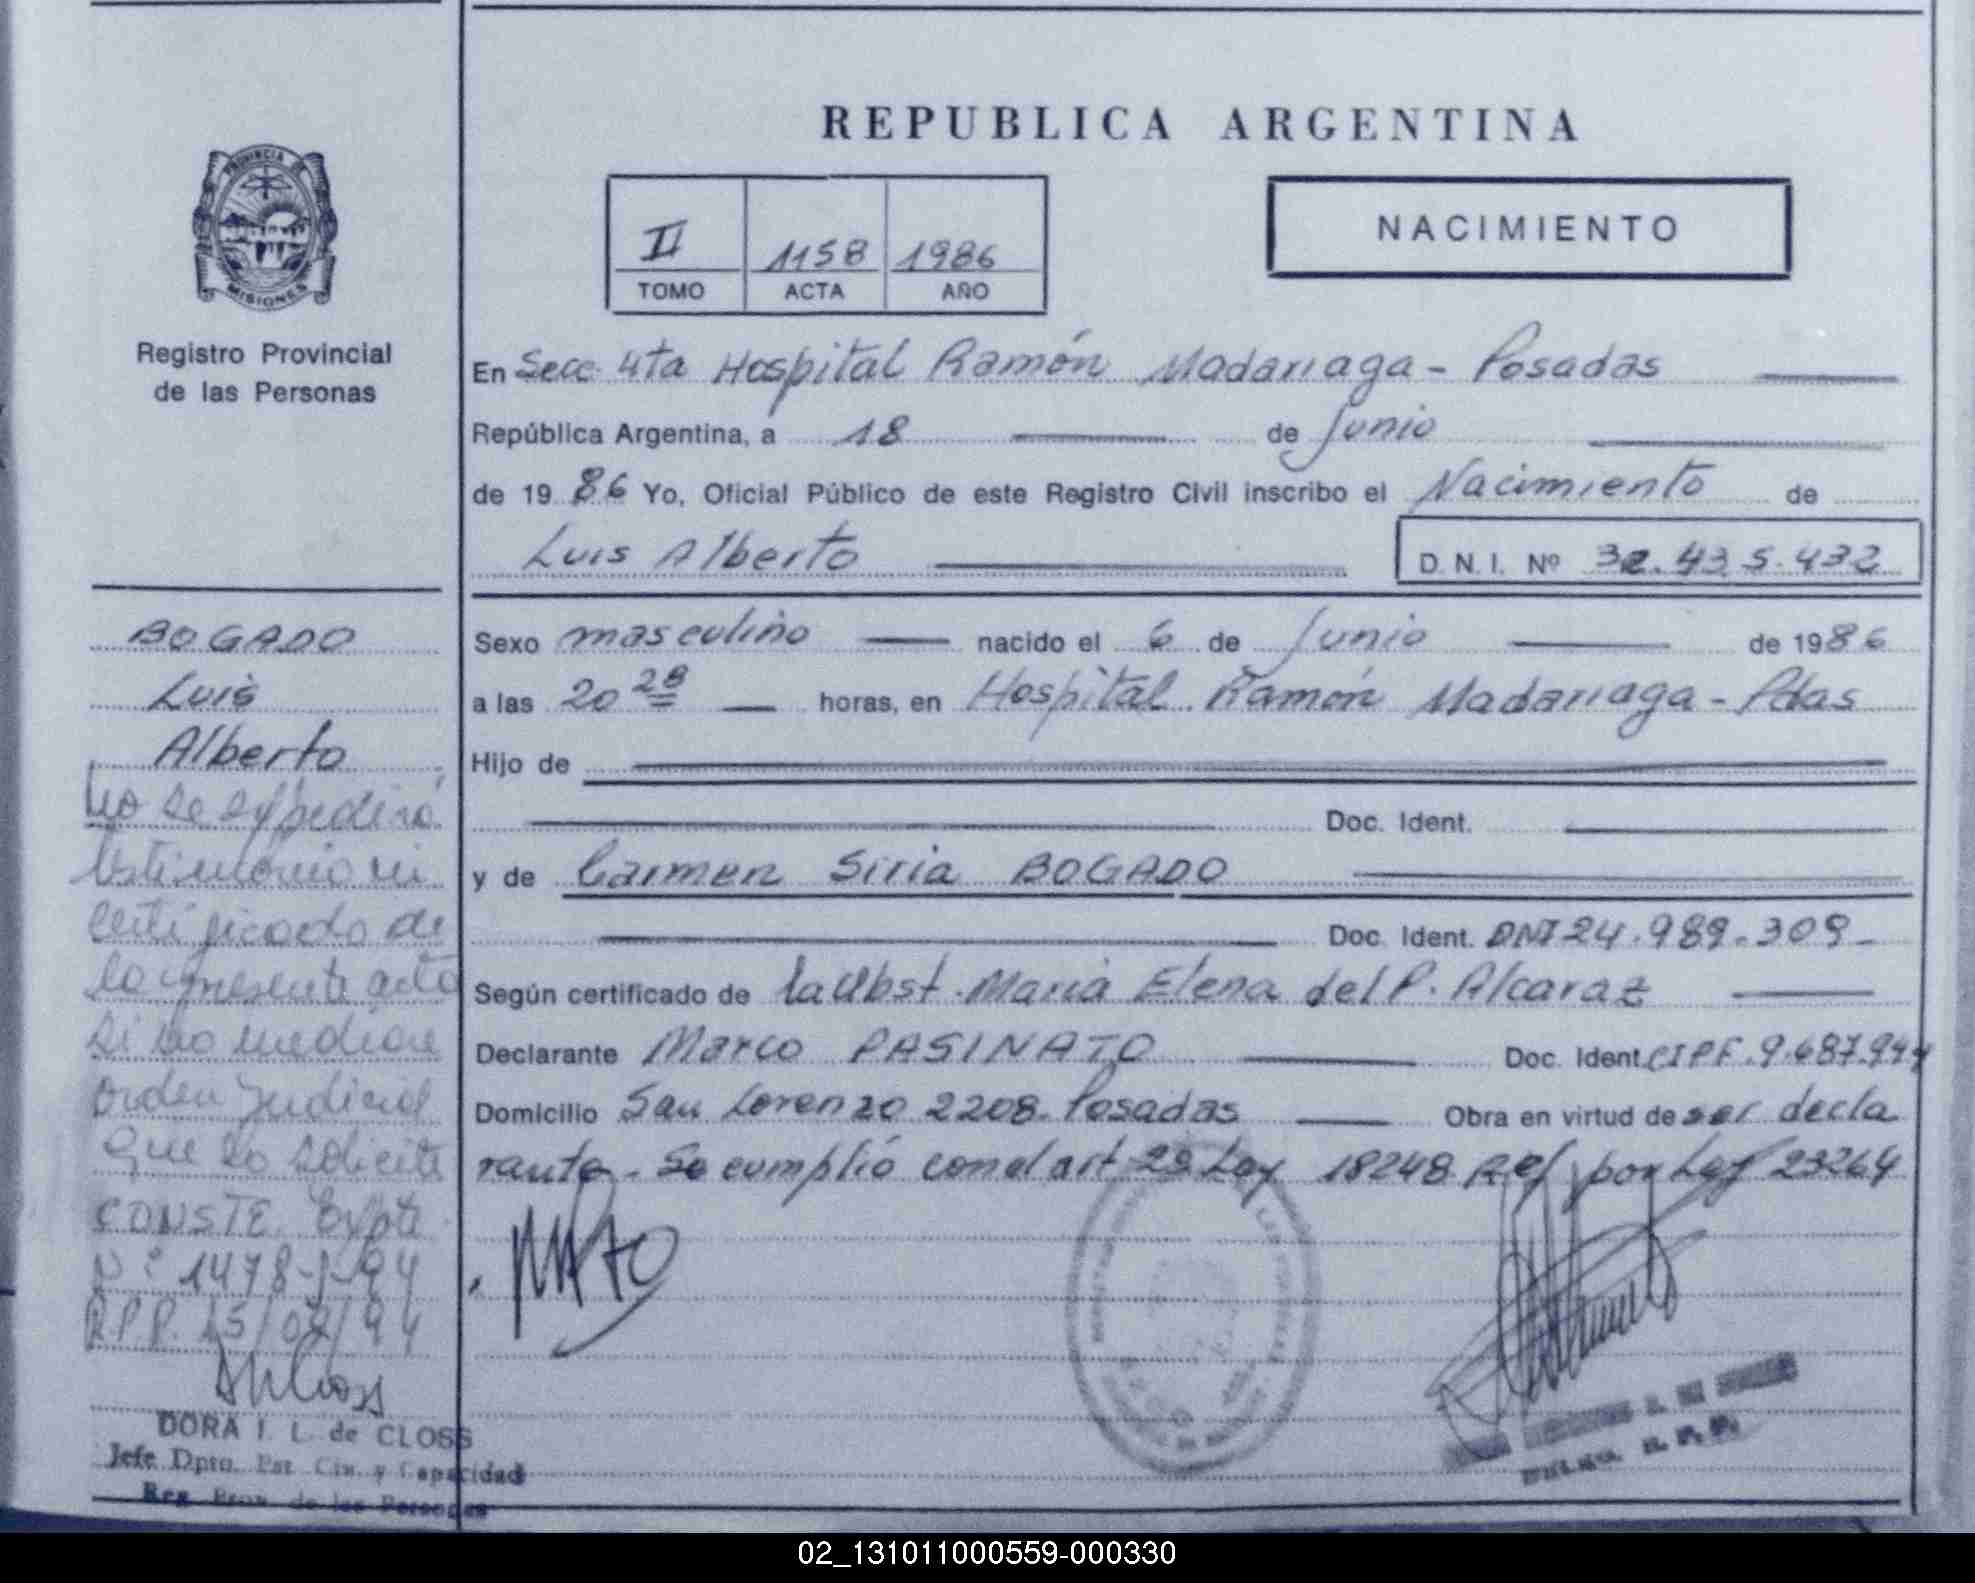 REPUBLICA ARGENTINA
PROVINCIA DE
MISIONES
Registro Provincial
de las Personas
II 1158 1986
TOMO ACTA AÑO
NACIMIENTO
En Secc. 4ta Hospital Ramón Madariaga - Posadas
República Argentina, a 18 de Junio
de 1986 Yo, Oficial Público de este Registro Civil inscribo el Nacimiento de
Luis Alberto
D.N.I. Nº 32.435.432
BOGADO
Luis
Alberto
No se expedirá
testimonio ni
certificado de
la presente acta
si no mediare
orden judicial
que lo solicite
CONSTE. Expte
Nº: 1478-J-94
R.P.P. 15/02/94
DORA I. L. de CLOSS
Jefe Dpto. Est. Civ. y Capacidad
Reg. Prov. de las Personas
Sexo masculino nacido el 6 de Junio de 1986
a las 20 28 horas, en Hospital Ramón Madariaga - Pdas
Hijo de
Doc. Ident.
y de Carmen Siria BOGADO
Doc. Ident. DNI 24.989.309
Según certificado de la Obst. Maria Elena del P. Alcaraz
Declarante Marco PASINATO Doc. Ident. CIPF. 9.687.944
Domicilio San Lorenzo 2208. Posadas Obra en virtud de ser decla
rante. Se cumplió con el art 29 Ley 18248 Ref por Ley 23264
02_131011000559-000330